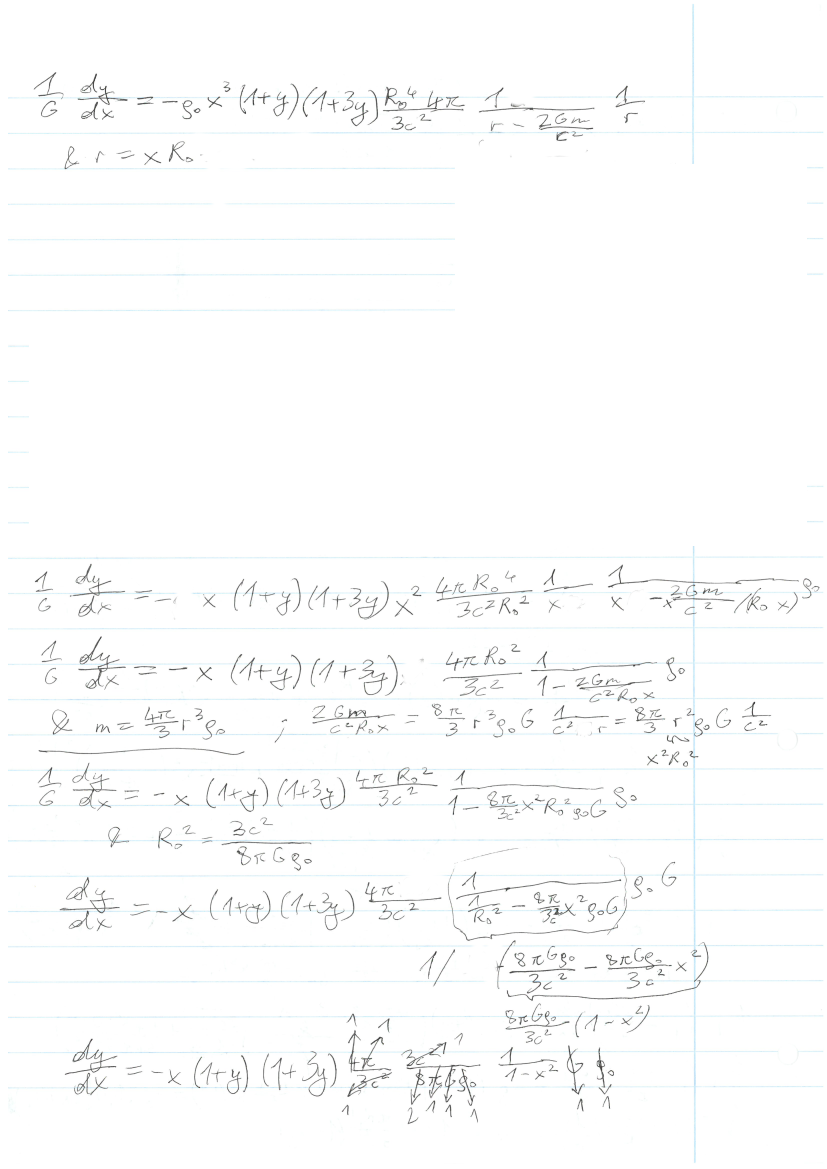 1/G dy/dx = -ρ₀ x³ (1+y)(1+3y) R₀⁴ 4π/3c² 1/(r - 2Gm/c²) 1/r
& r = x R₀.
1/G dy/dx = - x (1+y)(1+3y) x² 4πR₀⁴/3c²R₀² 1/x 1/(x - x 2Gm/c² /(R₀ x)) ρ₀
1/G dy/dx = - x (1+y)(1+3y) 4πR₀²/3c² 1/(1 - 2Gm/c²R₀x) ρ₀
& m = 4π/3 r³ρ₀ ; 2Gm/c²R₀x = 8π/3 r³ρ₀G 1/c² r = 8π/3 r²ρ₀G 1/c²
x²R₀²
1/G dy/dx = - x (1+y)(1+3y) 4πR₀²/3c² 1/(1 - 8π/3c² x²R₀²ρ₀G) ρ₀
& R₀² = 3c²/8πGρ₀
dy/dx = -x (1+y)(1+3y) 4π/3c² 1/(1/R₀² - 8π/3c² x²ρ₀G) ρ₀G
1/ (8πGρ₀/3c² - 8πGρ₀/3c² x²)
8πGρ₀/3c² (1-x²)
1 1 1
dy/dx = -x (1+y)(1+3y) 4π/3c² 3c²/8πGρ₀ 1/(1-x²) G ρ₀
1 2 1 1 1 1 1